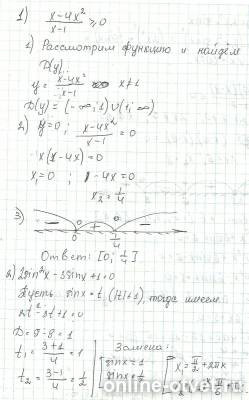 1) (x-4x²)/(x-1) ≥ 0
1) Рассмотрим функцию и найдём
D(y).
y = (x-4x²)/(x-1) x≠1
D(y) = (-∞; 1) ∪ (1; ∞)
2) y=0; (x-4x²)/(x-1) = 0
x(x-4x)=0
x₁=0; 1-4x=0
x₂=1/4
3) - 0 + 0 1/4 -
Ответ: [0; 1/4]
2) 2sin²x-3siny+1=0
Пусть sinx=t (|t|≤1), тогда имеем
2t²-3t+1=0
D=9-8=1
t₁=(3+1)/4=1
t₂=(3-1)/4=1/2
Замена:
sinx=1
sinx=1/2
x=π/2+2πk
online-otvet.ru